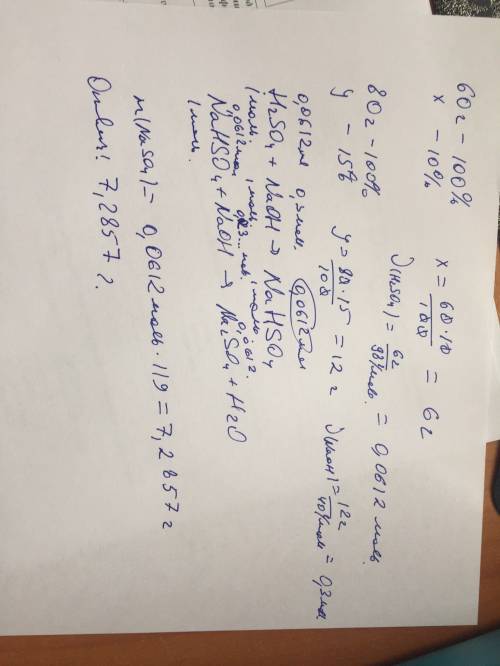 60г – 100%
x – 10%
x = 60·10/100 = 6г
ν(H2SO4) = 6г/98г/моль = 0,0612 моль.
80г – 100%
y – 15%
y = 80·15/100 = 12 г
ν(NaOH) = 12г/40г/моль = 0,3моль
0,0612моль 0,3моль. 0,0612моль
H2SO4 + NaOH → NaHSO4
1 моль. 1 моль. 1 моль
0,0612моль 0,23... изб. 0,0612.
NaHSO4 + NaOH → Na2SO4 + H2O
1 моль.
m(NaSO4) = 0,0612 моль · 119 = 7,2857 г
Ответ: 7,2857 г.